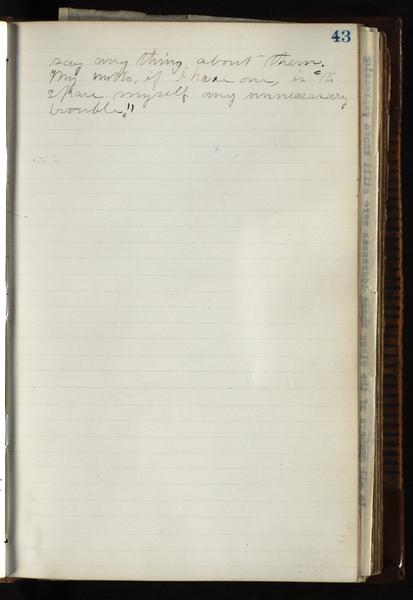 43
say any thing about them.
My motto, if I have one, is "to
spare myself any unnecessary
trouble."